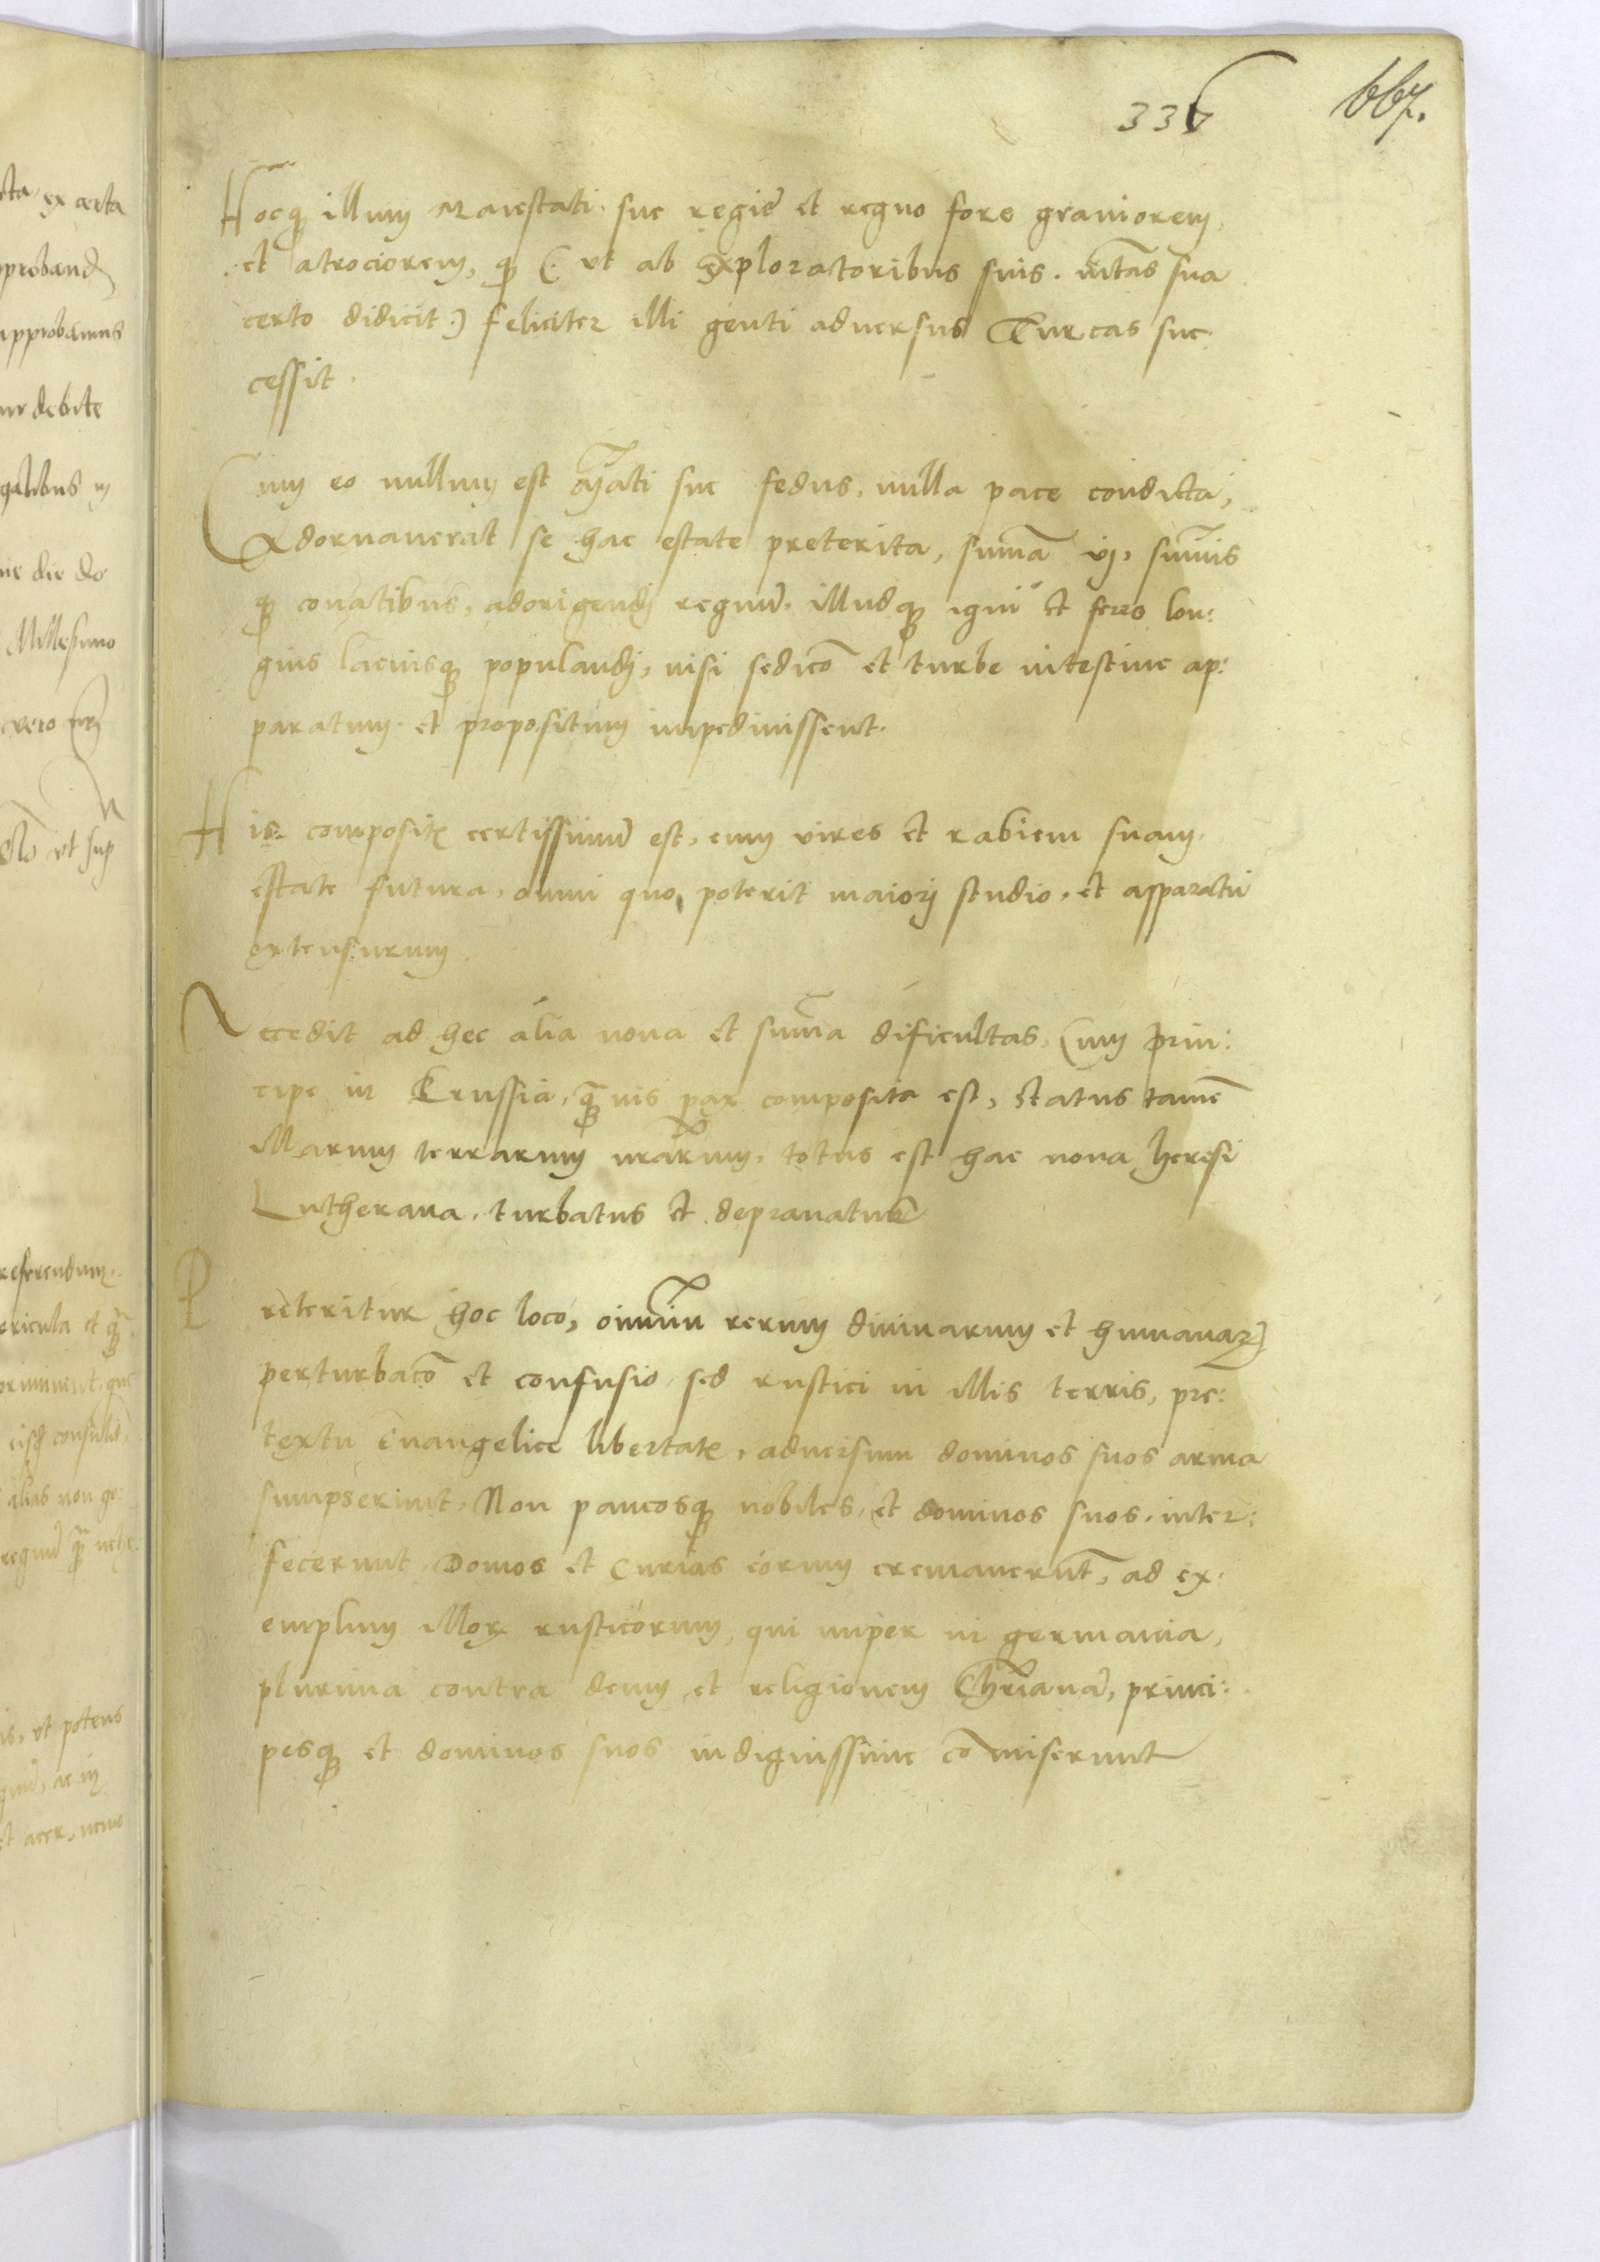 336
667.
Hocq illum Maiestati sue regie et regno fore graviorem
et atrociorem, q (ut ab exploratoribus suis. mtas sua
certo didicit) feliciter illi genti adversus Turcas suc:
cessit.
Cum eo nullum est Mati sue fedus, nulla pace condicta,
Adornaverat se hac estate preterita, suma vi, sumis
q conatibus, adorigendi regnum, illudq igni et ferro lon:
gius laciusq populandi, nisi sedico et turbe intestine ap:
paratum et propositum impedivissent.
His composit certissimum est, eum vires et rabiem suam
estate futura, omni quo poterit maiori studio, et apparatu
extensurum.
Accedit ad hec alia nova et suma dificultas, Cum prin:
cipe in Prussia, qvis pax composita est, status tamen
illarum terrarum, totus est hac nova heresi
Lutherana, turbatus et depravatus
Preteritur hoc loco, omnium rerum divinarum et humanar
perturbaco et confusio, sed rustici in illis terris, pre:
textu Evangelice libertat, adversum dominos suos arma
sumpserunt, Non paucosq nobiles, et dominos suos, inter:
fecerunt, Domos et Curias eorum cremaverunt, ad ex:
emplum illor rusticorum, qui nuper in germania,
plurima contra deum et religionem Chrianam, princi:
pesq et dominos suos indignissime comiserunt
ex certa
approbamus
debite
die do
Millesimo
vero
ut sup
referendum
pericula et
consulit
alias non
ut potens
ac in